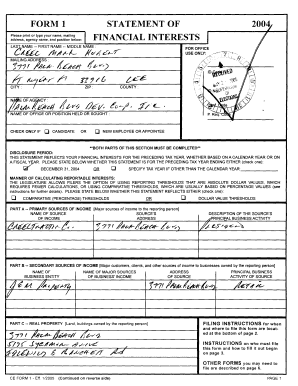 FORM 1
STATEMENT OF
FINANCIAL INTERESTS
2004
Please print or type your name, mailing
address, agency name, and position below:
LAST NAME - FIRST NAME - MIDDLE NAME
MAILING ADDRESS
3771 Palm Beach Blvd
Ft Myers Fl 33916 Lee
CITY ZIP COUNTY
NAME OF AGENCY
Palm Beach Blvd Dev. Corp. Inc.
NAME OF OFFICE OR POSITION HELD OR SOUGHT
FOR OFFICE
USE ONLY:
RECEIVED
CHECK ONLY IF CANDIDATE OR NEW EMPLOYEE OR APPOINTEE
**BOTH PARTS OF THIS SECTION MUST BE COMPLETED**
DISCLOSURE PERIOD:
THIS STATEMENT REFLECTS YOUR FINANCIAL INTERESTS FOR THE PRECEDING TAX YEAR, WHETHER BASED ON A CALENDAR YEAR OR ON
A FISCAL YEAR. PLEASE STATE BELOW WHETHER THIS STATEMENT IS FOR THE PRECEDING TAX YEAR ENDING EITHER (check one):
DECEMBER 31, 2004 OR SPECIFY TAX YEAR IF OTHER THAN THE CALENDAR YEAR:
MANNER OF CALCULATING REPORTABLE INTERESTS:
THE LEGISLATURE ALLOWS FILERS THE OPTION OF USING REPORTING THRESHOLDS THAT ARE ABSOLUTE DOLLAR VALUES, WHICH
REQUIRES FEWER CALCULATIONS, OR USING COMPARATIVE THRESHOLDS, WHICH ARE USUALLY BASED ON PERCENTAGE VALUES (see
instructions for further details). PLEASE STATE BELOW WHETHER THIS STATEMENT REFLECTS EITHER (check one):
COMPARATIVE (PERCENTAGE) THRESHOLDS OR DOLLAR VALUE THRESHOLDS
PART A -- PRIMARY SOURCES OF INCOME [Major sources of income to the reporting person]
NAME OF SOURCE
OF INCOME
SOURCE'S
ADDRESS
DESCRIPTION OF THE SOURCE'S
PRINCIPAL BUSINESS ACTIVITY
3771 Palm Beach Blvd
PART B -- SECONDARY SOURCES OF INCOME [Major customers, clients, and other sources of income to businesses owned by the reporting person]
NAME OF
BUSINESS ENTITY
NAME OF MAJOR SOURCES
OF BUSINESS' INCOME
ADDRESS
OF SOURCE
PRINCIPAL BUSINESS
ACTIVITY OF SOURCE
3771 Palm Beach Blvd Retail
PART C -- REAL PROPERTY [Land, buildings owned by the reporting person]
3771 Palm Beach Blvd
FILING INSTRUCTIONS for when
and where to file this form are located
at the bottom of page 2.
INSTRUCTIONS on who must file
this form and how to fill it out begin
on page 3.
OTHER FORMS you may need to
file are described on page 6.
CE FORM 1 - Eff. 1/2005 (Continued on reverse side) PAGE 1